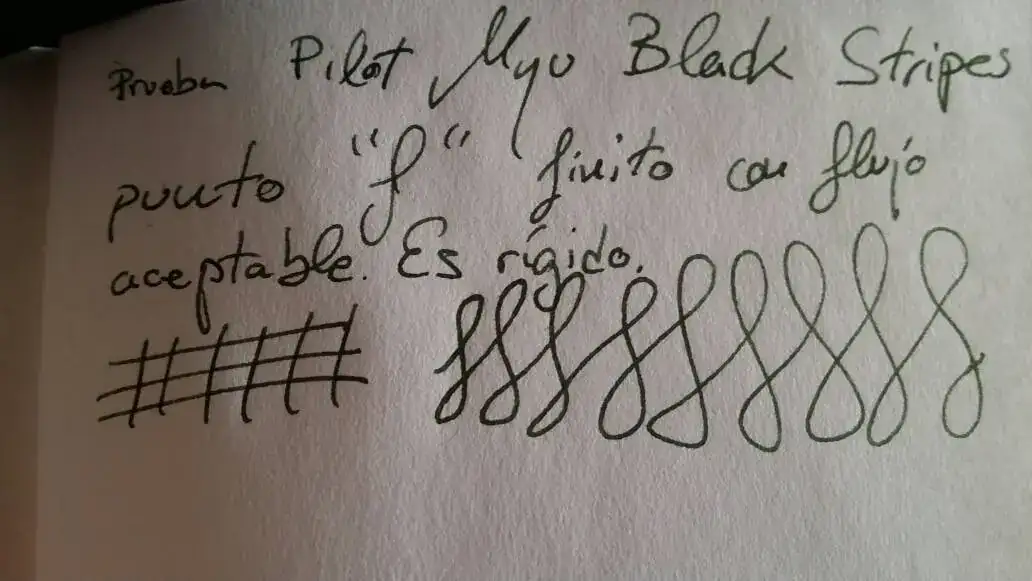 Prueba Pilot Myu Black Stripes
punto "f" finito con flujo
aceptable. Es rígido.